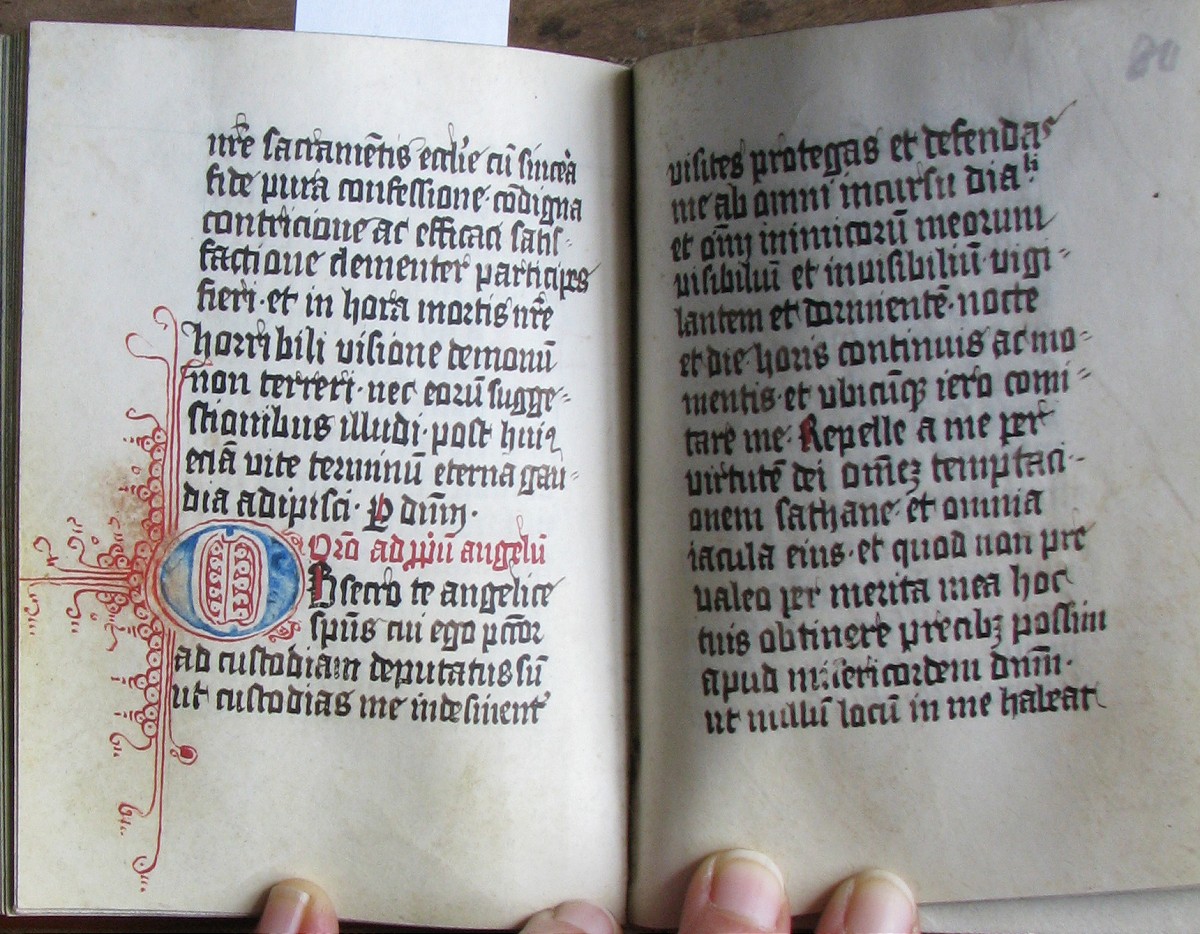 nr̄e sacramētis eccl'ie cū sincera
fide pura confessione · cōdigna
contricione ac efficaci satis-
factione clementer participes
fieri · et in hora mortis nr̄e
horribili visione demonū
non terreri · nec eorū sugge-
stionibus illudi · post hui9
eciā vite terminū eterna gau-
dia adipisci · P dn̄m ·
Oro ad ꝓpiū angelū
Obsecro te angelice
spūs cui ego pctor
ad custodiam deputatus sū
ut custodias me indesinent'
80
visites protegas et defendas
me ab omni incursu diaˡⁱ
et om̄i inimicorū meorum
visibiliū et invisibiliū vigi-
lantem et dormientē · nocte
et die · horis continuis ac mo-
mentis · et ubicūqꝫ iero comi-
tare me · Repelle a me per
virtutē dei om̄eꝫ temptaci-
onem sathane · et omnia
iacula eius · et quod non pre
valeo per merita mea hoc
tuis obtinere precibꝫ possim
apud misericordem dn̄m ·
ut nullū locū in me habeat